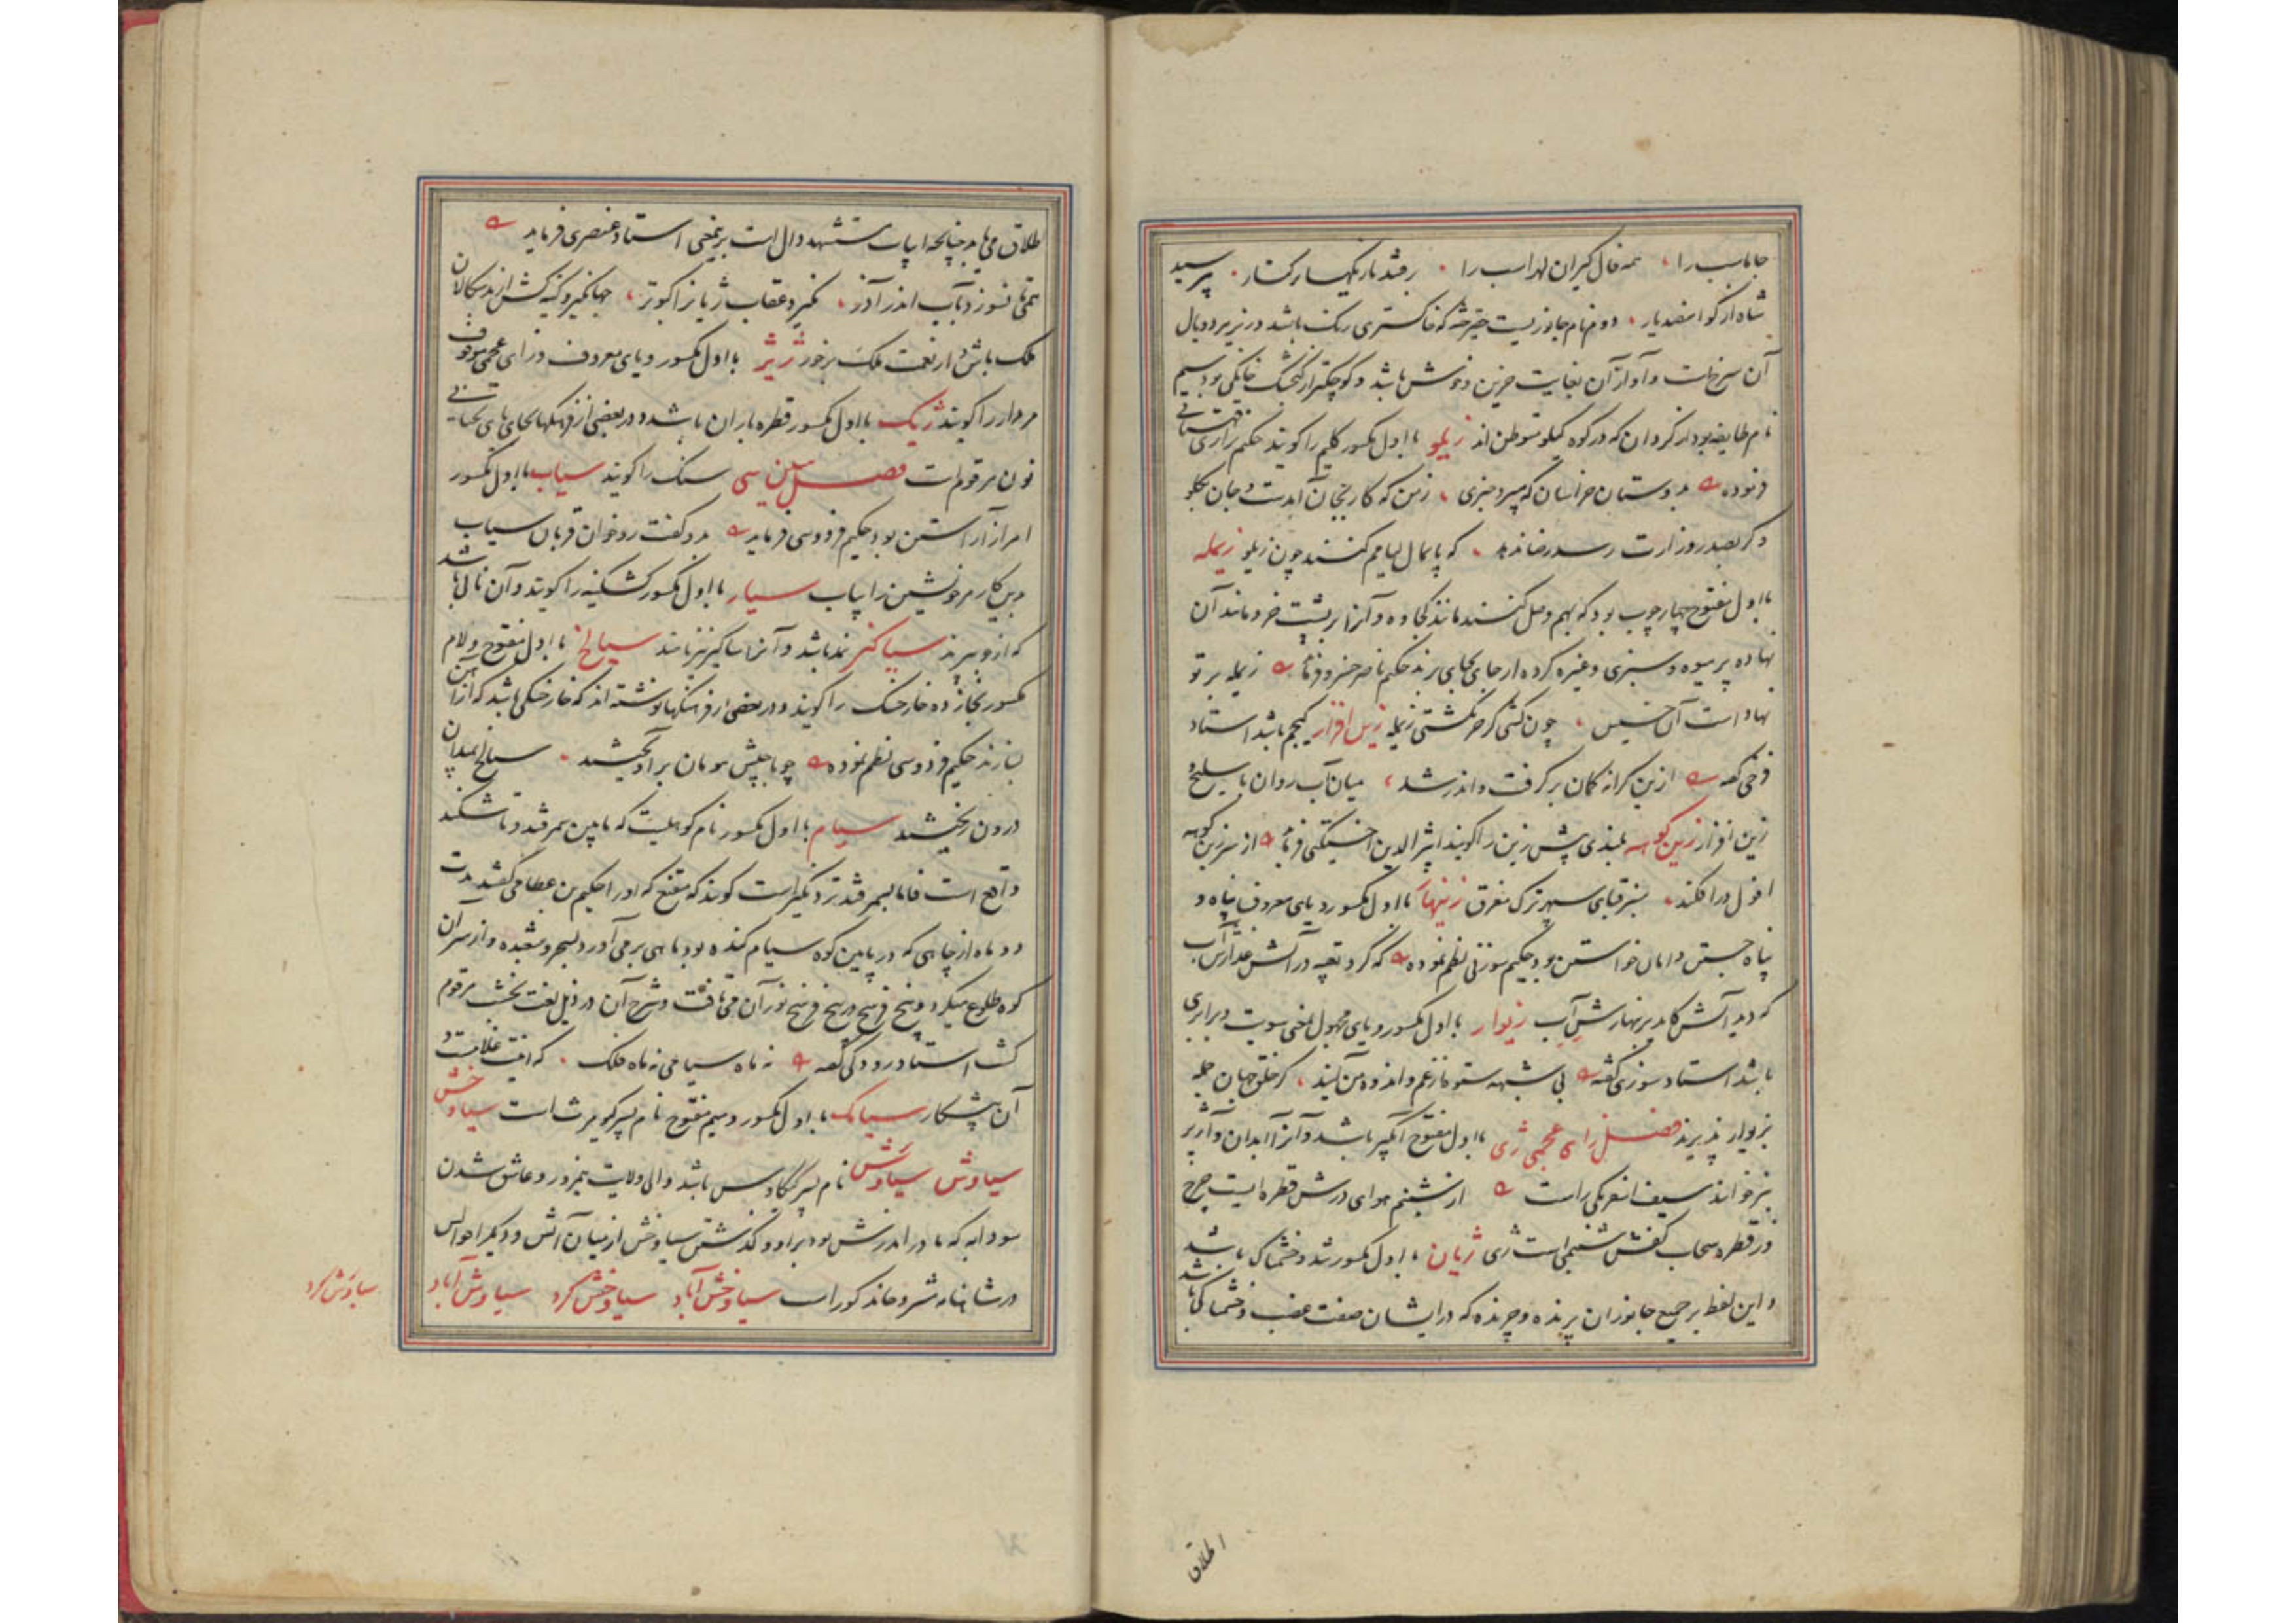 جاماسب را همه فال گیران لهراسب را برفتند با زیکها برکنار بپرسید
شاه از گو اسفندیار دوم نام جانوریست که خاکستری رنگ باشد در زیر پر و بال
آن سرخست و آواز آن بغایت حزین و خوش باشد و کوچکتر از گنجشک خانگی بود سیم
نام طایفه بود از کردان که در کوه کیلو متوطن اند زیلو با اول مکسور گلیم را گویند حکیم نزاری قهستانی
فرموده بدوستان خراسان که میبرد خبری ز من که کار بجان آمدست و جان بگلو
دگر بصدر وزارت رسد رضا ندهد که پایمال لیامم کنند چون زیلو زیمله
با اول مفتوح چهار چوب بود که بهم وصل کنند مانند کجاوه و آنرا بر پشت خر و مانند آن
نهاده پر میوه و سبزی و غیره کرده از جای بجای برند حکیم ناصر خسرو فرماید زیمله بر تو
نهاد است آن خسیس چون کشی گر خر نگشتی زیمله زین افزار کیجم باشد استاد
فرخی گفته ازین کرانه کمان برگرفت و اندر شد میان آب روان با سلیح و
زین افزار زین کوهه بلندی پیش زین را گویند اثیر الدین اخسیکتی فرماید از سر زین کوهه
افول در افکند بنر قبای سپهر ترک مغرق زینهار با اول مکسور و یای معروف پناه و
پناه جستن و امان خواستن بود حکیم سوزنی نظم نموده که گرد تعبیه در آتش عذارش آب
که دید آتش کامد بزنهارش آب زیوار با اول مکسور و یای مجهول بمعنی سویت و برابری
باشد استاد سوزنی گفته بی شبهه ستوه از غم و اندوه من آیند گر خلق جهان جمله
بزیوار پذیرند فصل زای عجمی ژی با اول مفتوح آبگیر باشد و آنرا آبدان و آژیر
نیز خوانند سیف اسفرنگی راست از شبنم هوای درش قطره ایست چرخ
در قطره سحاب کفش شبنمی است ژی ژیان با اول مکسور تند و خشمناک باشد
و این لفظ بر جمیع جانوران پرنده و چرنده که در ایشان صفت غضب و خشمناکی باشد
اطلاق
طلاق می‌یابد چنانچه ابیات مستشهد دال است برین معنی استاد عنصری فرماید
همی تا نسوزد بآب اندر آذر نگیرد عقاب ژیان را کبوتر جهانگیر و کینه کش از بدسگالان
ملک باش و از نعمت ملک برخور ژیژ با اول مکسور و یای معروف و زای عجمی موقوف
مردار را گویند ژیک با اول مکسور قطره باران باشد و در بعضی از فرهنگها بجای یای تحتانی
نون مرقوم است فصل سین سی سنگ را گویند سیاب با اول مکسور
امر از آراستن بود حکیم فردوسی فرماید بدو گفت رو خوان قربان سیاب
بدین کار مر خویشتن را بیاب سیار با اول مکسور کشکینه را گویند و آن نانی باشد
که از جو پزند سیاکیز نمد باشد و آنرا ساکیز نیز نامند سیالخ با اول مفتوح و لام
مکسور بخا زده خار خسک را گویند و در بعضی از فرهنگها نوشته اند که خار خسکی باشد که از آهن
بسازند حکیم فردوسی نظم نموده چو با جیش هومان بر آویختند سیالخ بمیدان
درون ریختند سیام با اول مکسور نام کوهیست که مابین سمرقند و تاشکند
واقع است فاما بسمرقند نزدیکتر است گویند که مقنع که او را حکیم بن عطا می گفتند مدت
دو ماه از چاهی که در پایین کوه سیام کنده بود ماهی بر می آورد بسحر و شعبده و از سر آن
کوه طلوع میکرد و پنج فرسخ در پنج فرسخ نور آن می تافت و شرح آن در ذیل لغت نخشب مرقوم
گشت استاد رودکی گفته نه ماه سیامی نه ماه فلک که اینت غلامست و
آن پیشکار سیامک با اول مکسور و میم مفتوح نام پسر کیومرث است سیاوخش
سیاوش سیاوش نام پسر کیکاوس باشد والی ولایت نیمروز و عاشق شدن
سودابه که مادر اندرش بود برو و گذشتن سیاوخش از میان آتش و دیگر احوالش
در شاهنامه مشروحا مذکور است سیاوخش آباد سیاوخش گرد سیاوش آباد
سیاوش گرد